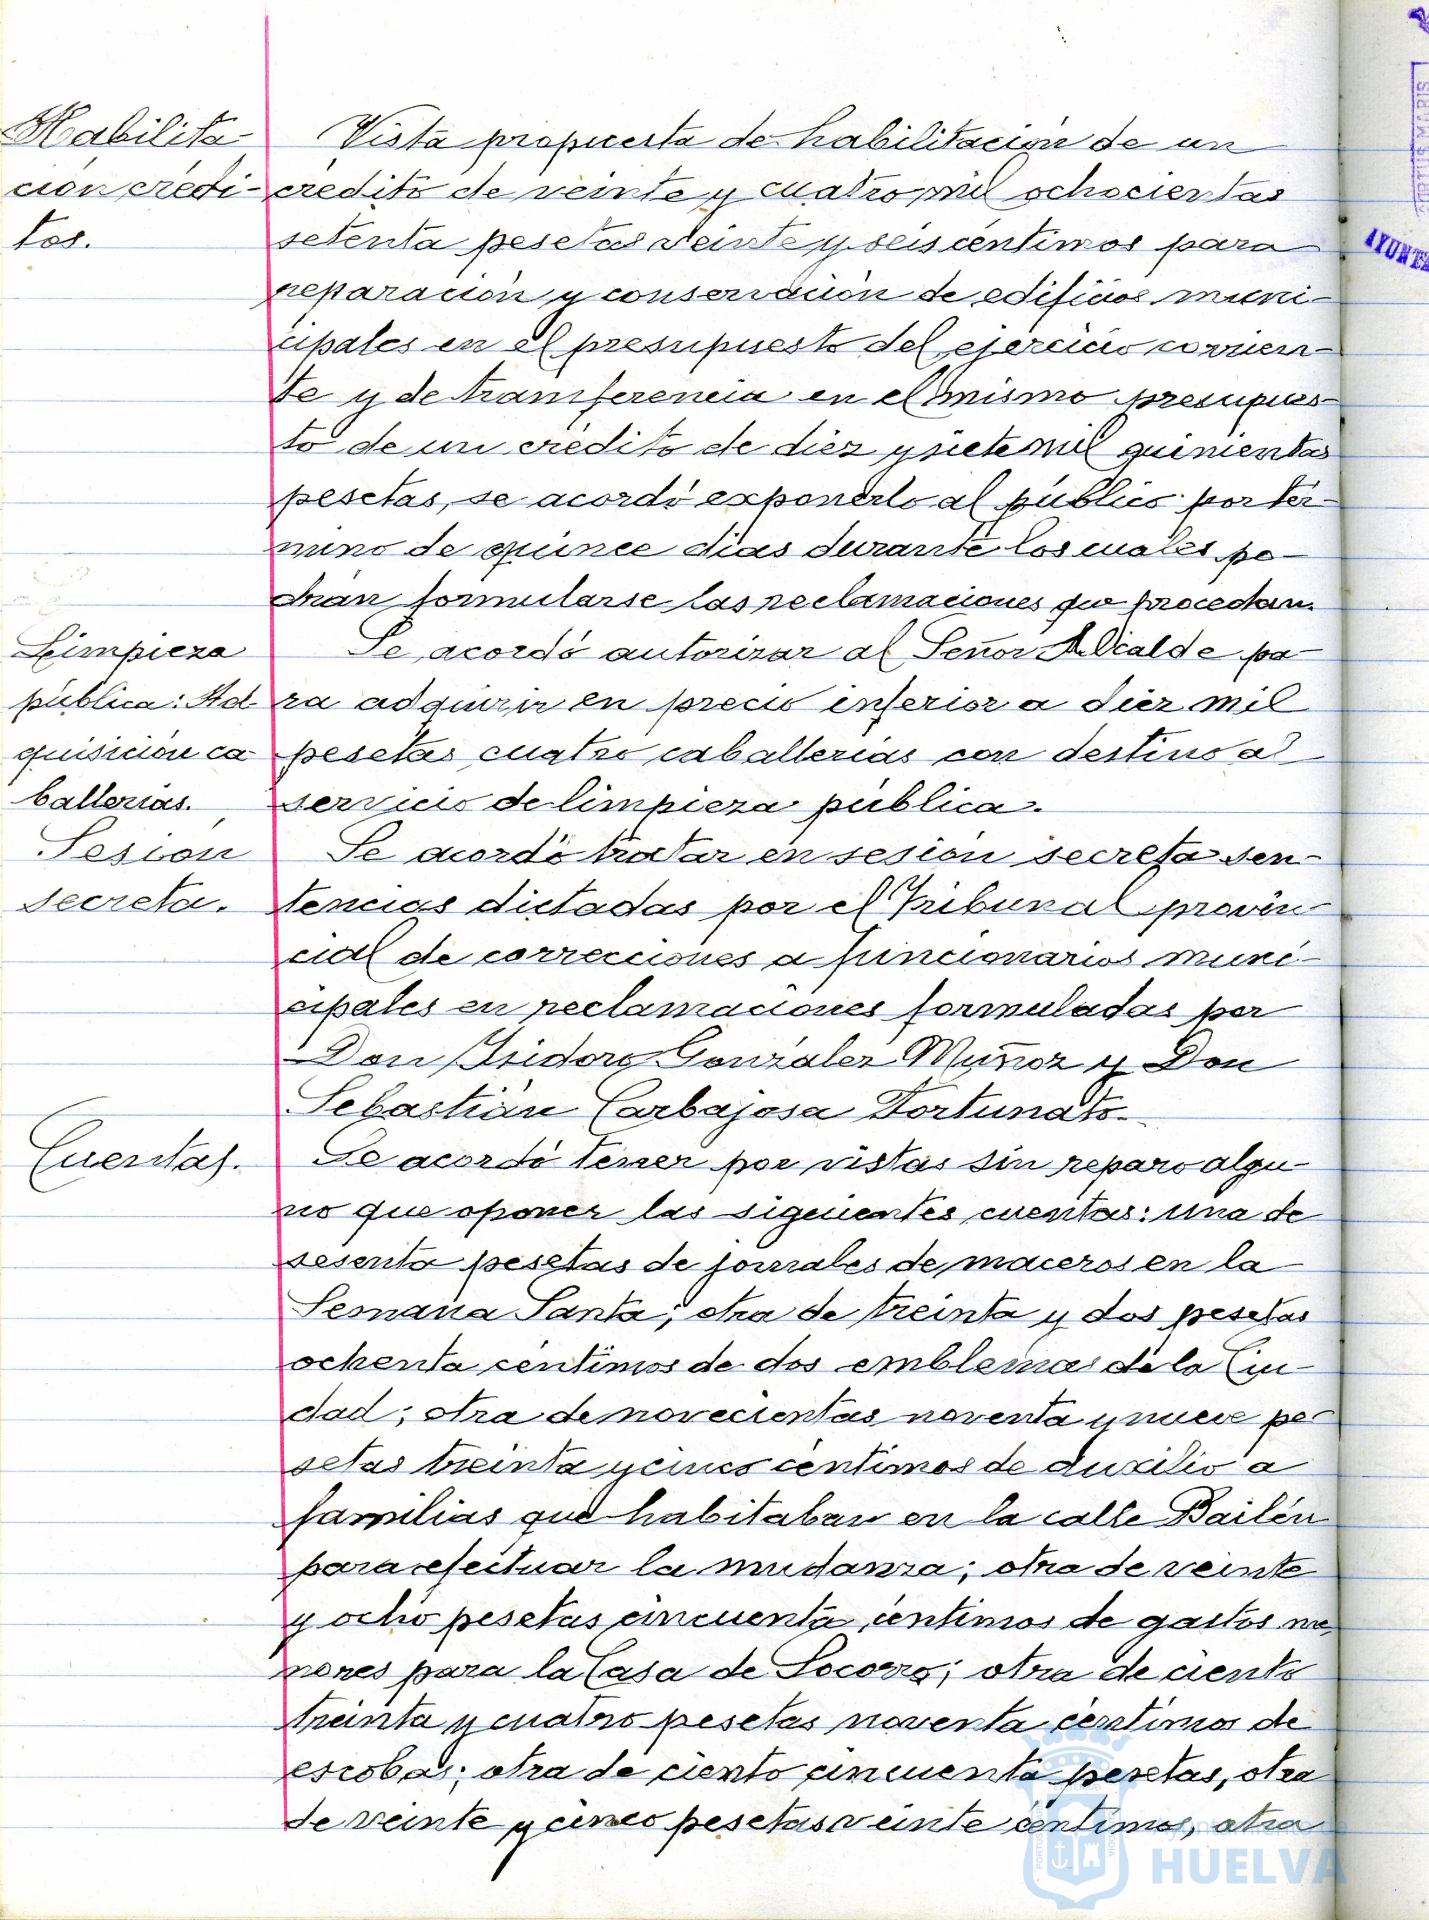 Habilita-
ción crédi-
tos.
Vista propuesta de habilitación de un
crédito de veinte y cuatro mil ochocientas
setenta pesetas veinte y seis céntimos para
reparación y conservación de edificios muni-
cipales en el presupuesto del ejercicio corrien-
te y de transferencia en el mismo presupues-
to de un crédito de diez y siete mil quinientas
pesetas, se acordó exponerlo al público por tér-
mino de quince dias durante los cuales po-
drán formularse las reclamaciones que procedan.
Limpieza
pública: Ad-
quisición ca-
ballerías.
Se acordó autorizar al Señor Alcalde pa-
ra adquirir en precio inferior a diez mil
pesetas cuatro caballerías con destino al
servicio de limpieza pública.
Sesión
secreta.
Se acordó tratar en sesión secreta sen-
tencias dictadas por el Tribunal provin-
cial de correcciones a funcionarios muni-
cipales en reclamaciones formuladas por
Don Isidoro González Muñoz y Don
Sebastián Carbajosa Fortunato.
Cuentas.
Se acordó tener por vistas sin reparo algu-
no que oponer las siguientes cuentas: una de
sesenta pesetas de jornales de maceros en la
Semana Santa; otra de treinta y dos pesetas
ochenta céntimos de dos emblemas de la Ciu-
dad; otra de novecientas noventa y nueve pe-
setas treinta y cinco céntimos de auxilio a
familias que habitaban en la calle Bailén
para efectuar la mudanza; otra de veinte
y ocho pesetas cincuenta céntimos de gastos me-
nores para la Casa de Socorro; otra de ciento
treinta y cuatro pesetas noventa céntimos de
escobas; otra de ciento cincuenta pesetas, otra
de veinte y cinco pesetas veinte céntimos, otra
Ayuntamiento de
HUELVA